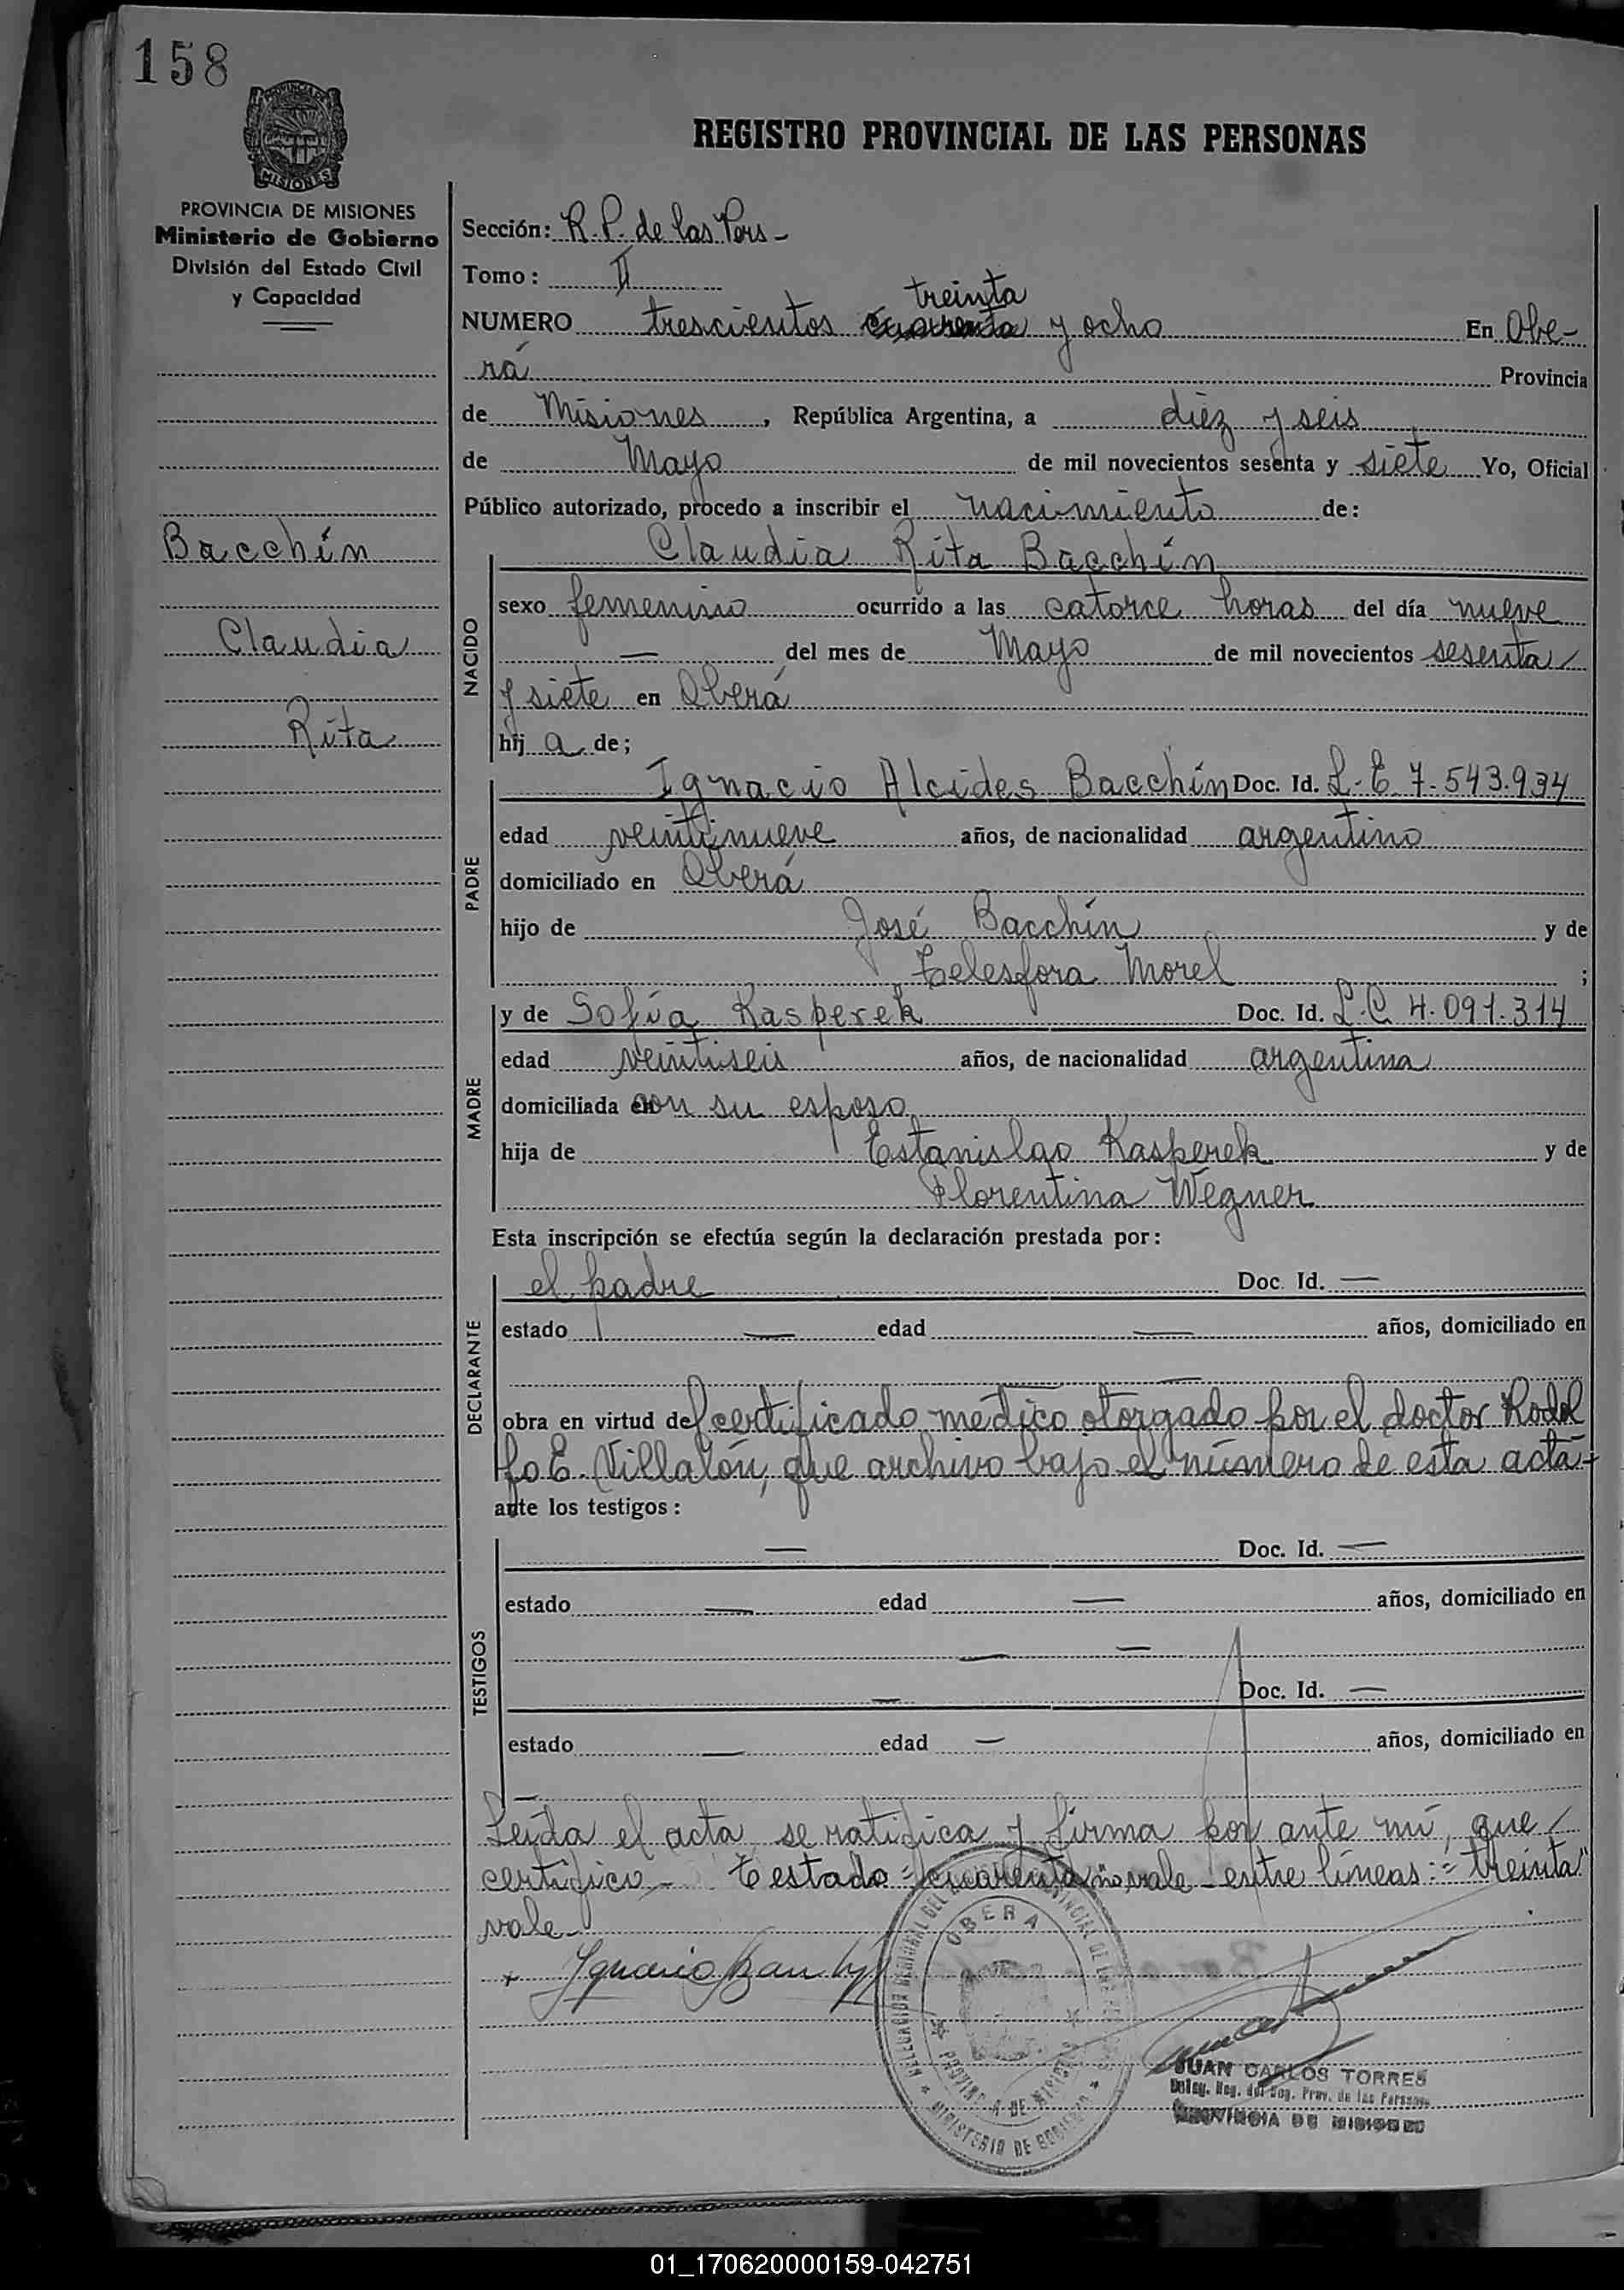 158
PROVINCIA DE
MISIONES
REGISTRO PROVINCIAL DE LAS PERSONAS
PROVINCIA DE MISIONES
Ministerio de Gobierno
División del Estado Civil
y Capacidad
Bacchín
Claudia
Rita
Sección: R. P. de las Pers -
Tomo: II
treinta
NUMERO trescientos cuarenta y ocho En Obe-
rá Provincia
de Misiones, República Argentina, a diez y seis
de Mayo de mil novecientos sesenta y siete Yo, Oficial
Público autorizado, procedo a inscribir el nacimiento de:
NACIDO
Claudia Rita Bacchín
sexo femenino ocurrido a las catorce horas del día nueve
— del mes de Mayo de mil novecientos sesenta
y siete en Oberá
hij a de;
PADRE
Ignacio Alcides Bacchín Doc. Id. L. E. 7.543.934
edad veintinueve años, de nacionalidad argentino
domiciliado en Oberá
hijo de José Bacchín y de
Telesfora Morel ;
MADRE
y de Sofía Kasperek Doc. Id. L.C. 4.091.314
edad veintiseis años, de nacionalidad argentina
domiciliada en con su esposo
hija de Estanislao Kasperek y de
Florentina Wegner
Esta inscripción se efectúa según la declaración prestada por:
DECLARANTE
el padre Doc. Id. —
estado — edad — años, domiciliado en
—
obra en virtud del certificado médico otorgado por el doctor Rodol
fo E. Villalón, que archivo bajo el número de esta acta-
ante los testigos:
TESTIGOS
— Doc. Id. —
estado — edad — años, domiciliado en
— —
— Doc. Id. —
estado — edad — años, domiciliado en
—
Leída el acta, se ratifica y firma por ante mí, que
certifico - Testado = "cuarenta" no vale - entre líneas: = "treinta"
vale -
OBERA
PROVINCIA DE MISIONES
MINISTERIO DE GOBIERNO
JUAN CARLOS TORRES
Deleg. Reg. del Reg. Prov. de las Personas
PROVINCIA DE MISIONES
01_170620000159-042751